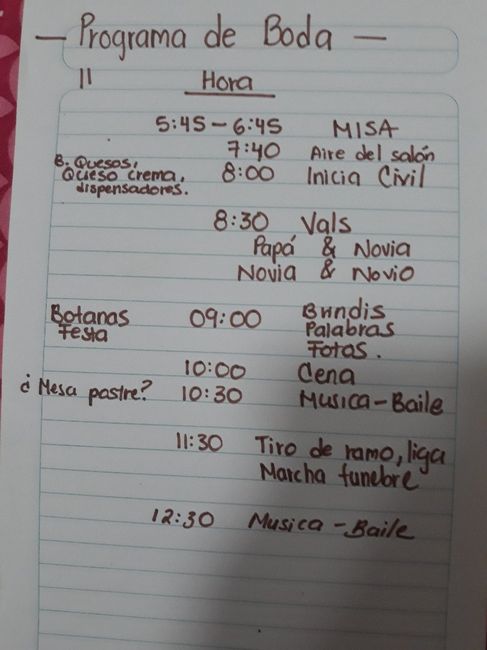 — Programa de Boda —
Hora
5:45 – 6:45 MISA
7:40 Aire del salón
B. Quesos,
Queso crema, 8:00 Inicia Civil
dispensadores.
8:30 Vals
Papá & Novia
Novia & Novio
Botanas 09:00 Brindis
Festa Palabras
Fotos.
10:00 Cena
¿Mesa pastre? 10:30 Musica – Baile
11:30 Tiro de ramo, liga
Marcha funebre
12:30 Musica – Baile